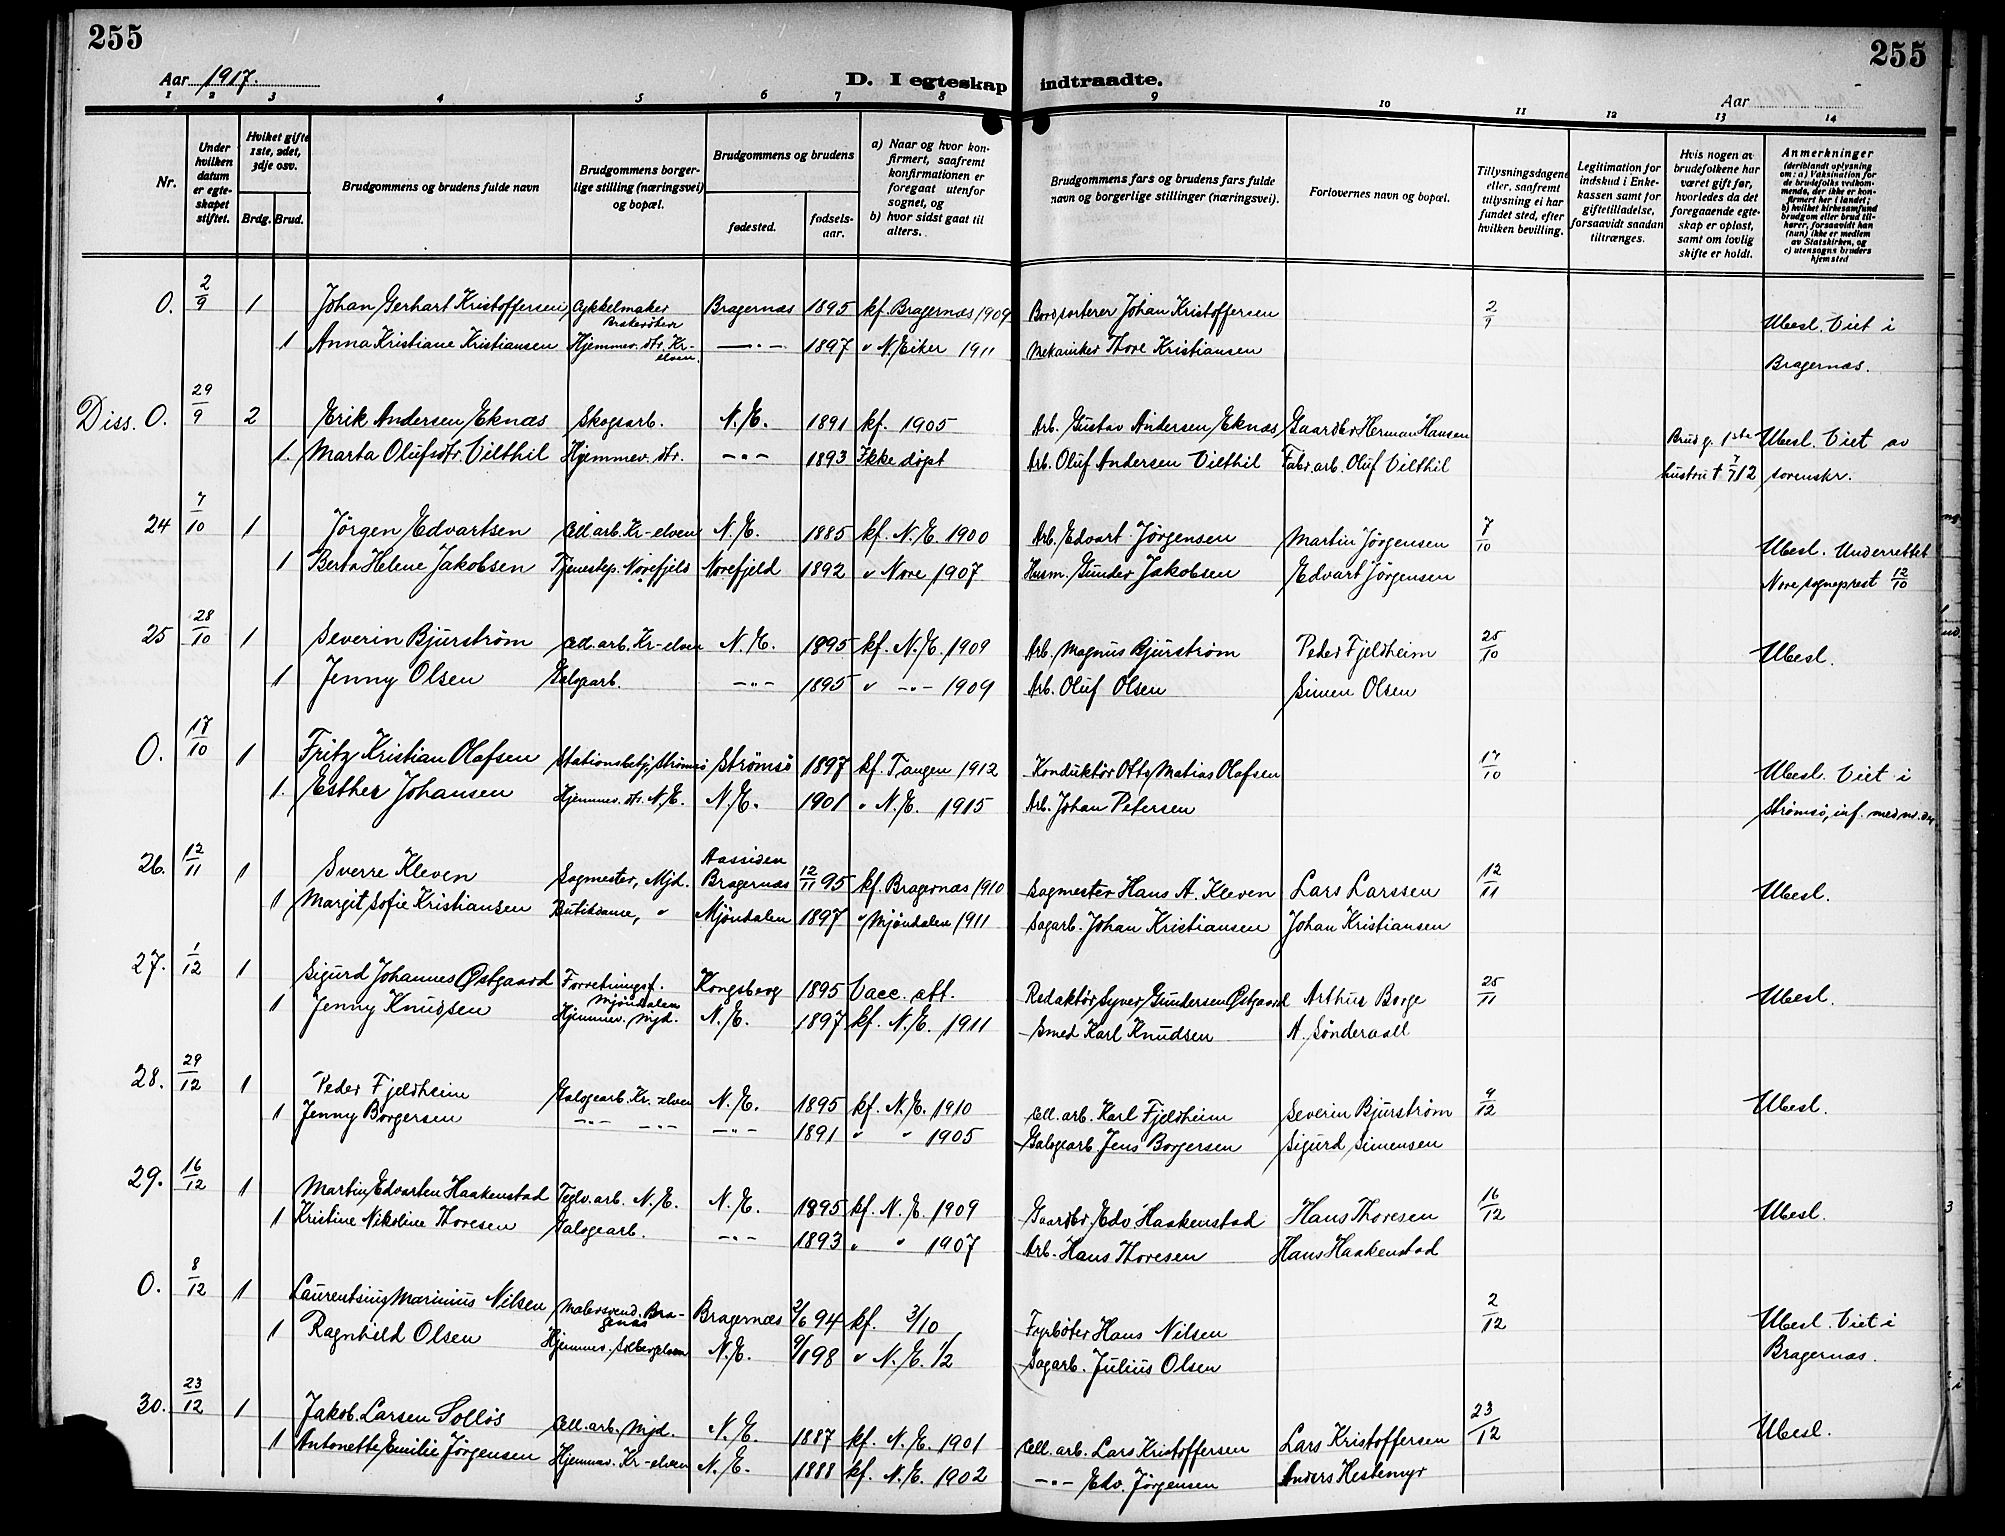 255
255
Aar 1917.
D. I egteskap indtraadte.
Aar
1 2 3 4 5 6 7 8 9 10 11 12 13 14
Nr.
Under hvilken datum er egteskapet stiftet.
Hvilket gifte 1ste, 2det, 3dje osv.
Brdg. Brud.
Brudgommens og brudens fulde navn
Brudgommens borgerlige stilling (næringsvei) og bopæl.
Brudgommens og brudens
fødested.
fødselsaar.
a) Naar og hvor konfirmert, saafremt konfirmationen er foregaat utenfor sognet, og
b) hvor sidst gaat til alters.
Brudgommens fars og brudens fars fulde navn og borgerlige stillinger (næringsvei).
Forlovernes navn og bopæl.
Tillysningsdagene eller, saafremt tillysning ei har fundet sted, efter hvilken bevilling.
Legitimation for indskud i Enkekassen samt for giftetilladelse, forsaavidt saadan tiltrænges.
Hvis nogen av brudefolkene har været gift før, hvorledes da det foregaaende egteskap er opløst, samt om lovlig skifte er holdt.
Anmerkninger (deriblandt oplysning om: a) Vaksination for de brudefolks vedkommende, der ikke er konfirmert her i landet; b) hvilket kirkesamfund brudgom eller brud tilhører, forsaavidt han (hun) ikke er medlem av Statskirken, og c) utensogns bruders hjemsted
O. 2/9 1 Johan Gerhart Kristoffersen Cykkelmaker Brakerøen Bragernæs 1895 kf. Bragernæs 1909 Bordsorterer Johan Kristoffersen 2/9 Ubesl. Viet i
1 Anna Kristiane Kristiansen Hjemmev. dtr. Kr-elven —"— 1897 " N. Eiker 1911 Mekaniker Thore Kristiansen Bragernæs.
Diss. O. 29/9 2 Erik Andersen Eknæs Skogsarb. N.E. 1891 kf. 1905 Arb. Gustav Andersen Eknæs Gaardbr Herman Hansen Brudg. 1ste Ubesl. Viet av
1. Marta Olufsdtr. Vilthil Hjemmev. dtr. -"- 1893 Ikke døpt Arb. Oluf Andersen Vilthil Fabr. arb. Oluf Vilthil hustru † 7/7 12 sorenskr.
24 7/10 1 Jørgen Edvartsen Cell. arb. Kr-elven N.E. 1885 kf. N.E. 1900 Arb. Edvart Jørgensen Martin Jørgensen 7/10 Ubesl. Underrettet
1 Berta Helene Jakobsen Tjenestep. Norefjeld Norefjeld 1892 " Nore 1907 Husm. Gunder Jakobsen Edvart Jørgensen Nore sogneprest 12/10
25 28/10 1 Severin Bjurstrøm Cel. arb. Kr-elven N.E. 1895 kf. N.E. 1909 Arb. Magnus Bjurstrøm Peder Fjeldheim 25/10 Ubesl.
1 Jenny Olsen Galogearb. -"- 1895 " -"- 1909 Arb. Oluf Olsen Simen Olsen
O. 17/10 1 Fritz Kristian Olafsen Stationsbetj, Strømsø Strømsø 1897 kf. Tangen 1912 Konduktør Otto Matias Olafsen 17/10 Ubesl. Viet i
1. Esther Johansen Hjemmev. dtr. N.E. N.E. 1901 " N.E. 1915 Arb. Johan Petersen Strømsø,
26. 12/11 1 Sverre Kleven Sagmester, Mjd. Aassiden Bragernæs 12/11 95 kf. Bragernæs 1910 Sagmester Hans A. Kleven Lars Larssen 12/11 Ubesl.
1 Margit Sofie Kristiansen Butikdame, " Mjøndalen 1897 " Mjøndalen 1911 Sagarb. Johan Kristiansen Johan Kristiansen
27. 1/12 1 Sigurd Johannes Østgaard Forretningsf. Mjøndalen Kongsberg 1895 Vacc. att. Redaktør Syver Gundersen Østgaard Arthur Borge 25/11 Ubesl.
1 Jenny Knudsen Hjemmev. Mjd. N.E. 1897 kf. N.E. 1911 Smed Karl Knudsen A. Sønderaall
28. 29/12 1 Peder Fjeldheim Galogearb. Kr-elven N.E. 1895 kf. N.E. 1910 Cell. arb. Karl Fjeldheim Severin Bjurstrøm 9/12 Ubesl.
1 Jenny Borgersen -"- -"- -"- 1891 " " 1905 Galogearb. Jens Borgersen Sigurd Simensen
29. 16/12 1 Martin Edvartsen Haakenstad Teglv. arb. N.E. N.E. 1895 kf. N.E. 1909 Gaardbr. Edv Haakenstad Hans Thoresen 16/12 Ubesl.
1 Kristine Nikoline Thoresen Galogearb. -"- 1893 " " 1907 Arb. Hans Thoresen Hans Haakenstad
O. 8/12 1 Laurentsius Marinius Nilsen Malersvend. Bragernæs Bragernæs 2/6 94 kf. 3/10 Fyrbøter Hans Nilsen 2/12 Ubesl. Viet i
1 Ragnhild Olsen Hjemmev. Solbergelven N.E. 9/1 98 " N.E. 1/2 Sagarb. Julius Olsen Bragernæs.
30. 23/12 1 Jakob Larsen Solløs Cell. arb. Mjd. N.E. 1887 kf. N.E. 1901 Cell. arb. Lars Kristoffersen Lars Kristoffersen 23/12 Ubesl.
1 Antonette Emilie Jørgensen Hjemmev. Kr-elven N.E. 1888 kf. N.E. 1902 -"- Edv. Jørgensen Anders Hestemyr